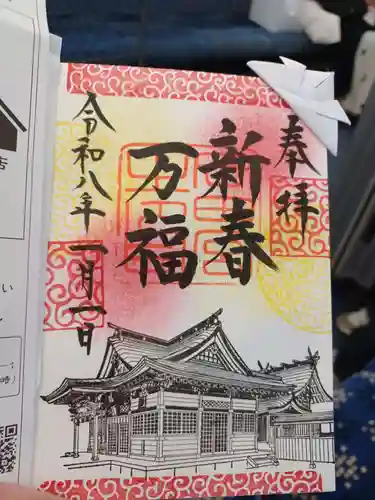 奉拝
新春
万福
令和八年 一月一日
店
い
時)